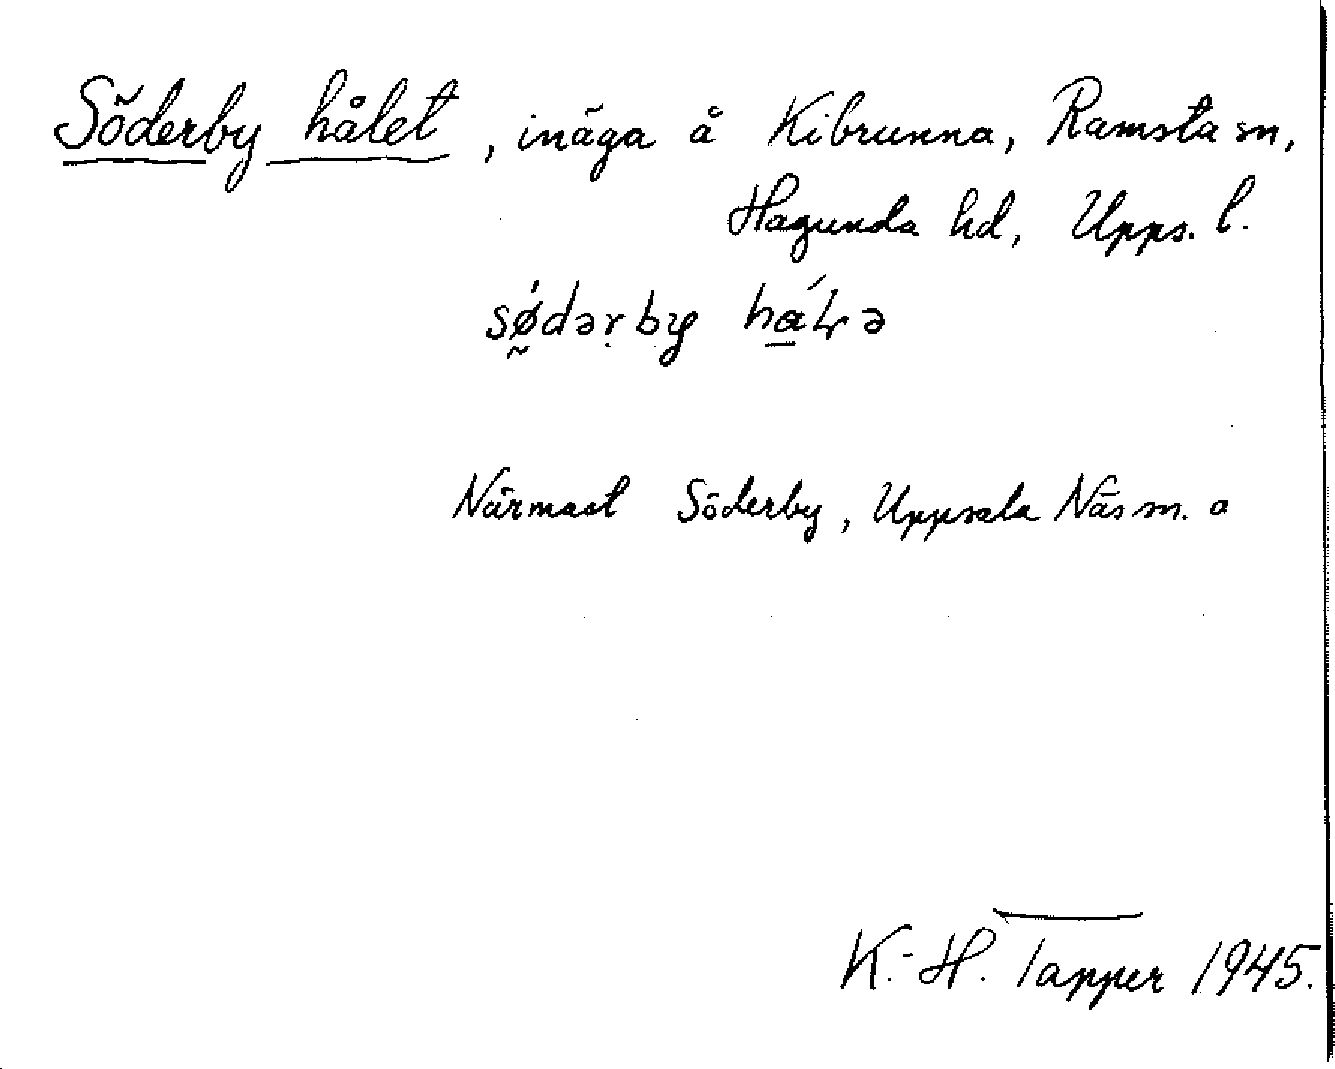 Söderby hålet, inäga å Kibrunna, Ramsta sn,
Hagunda hd, Upps. l.
sǿ̰dəṛby hά̱ⱡə
Närmast Söderby, Uppsala Näs sn. o
K.-H. Tapper 1945.